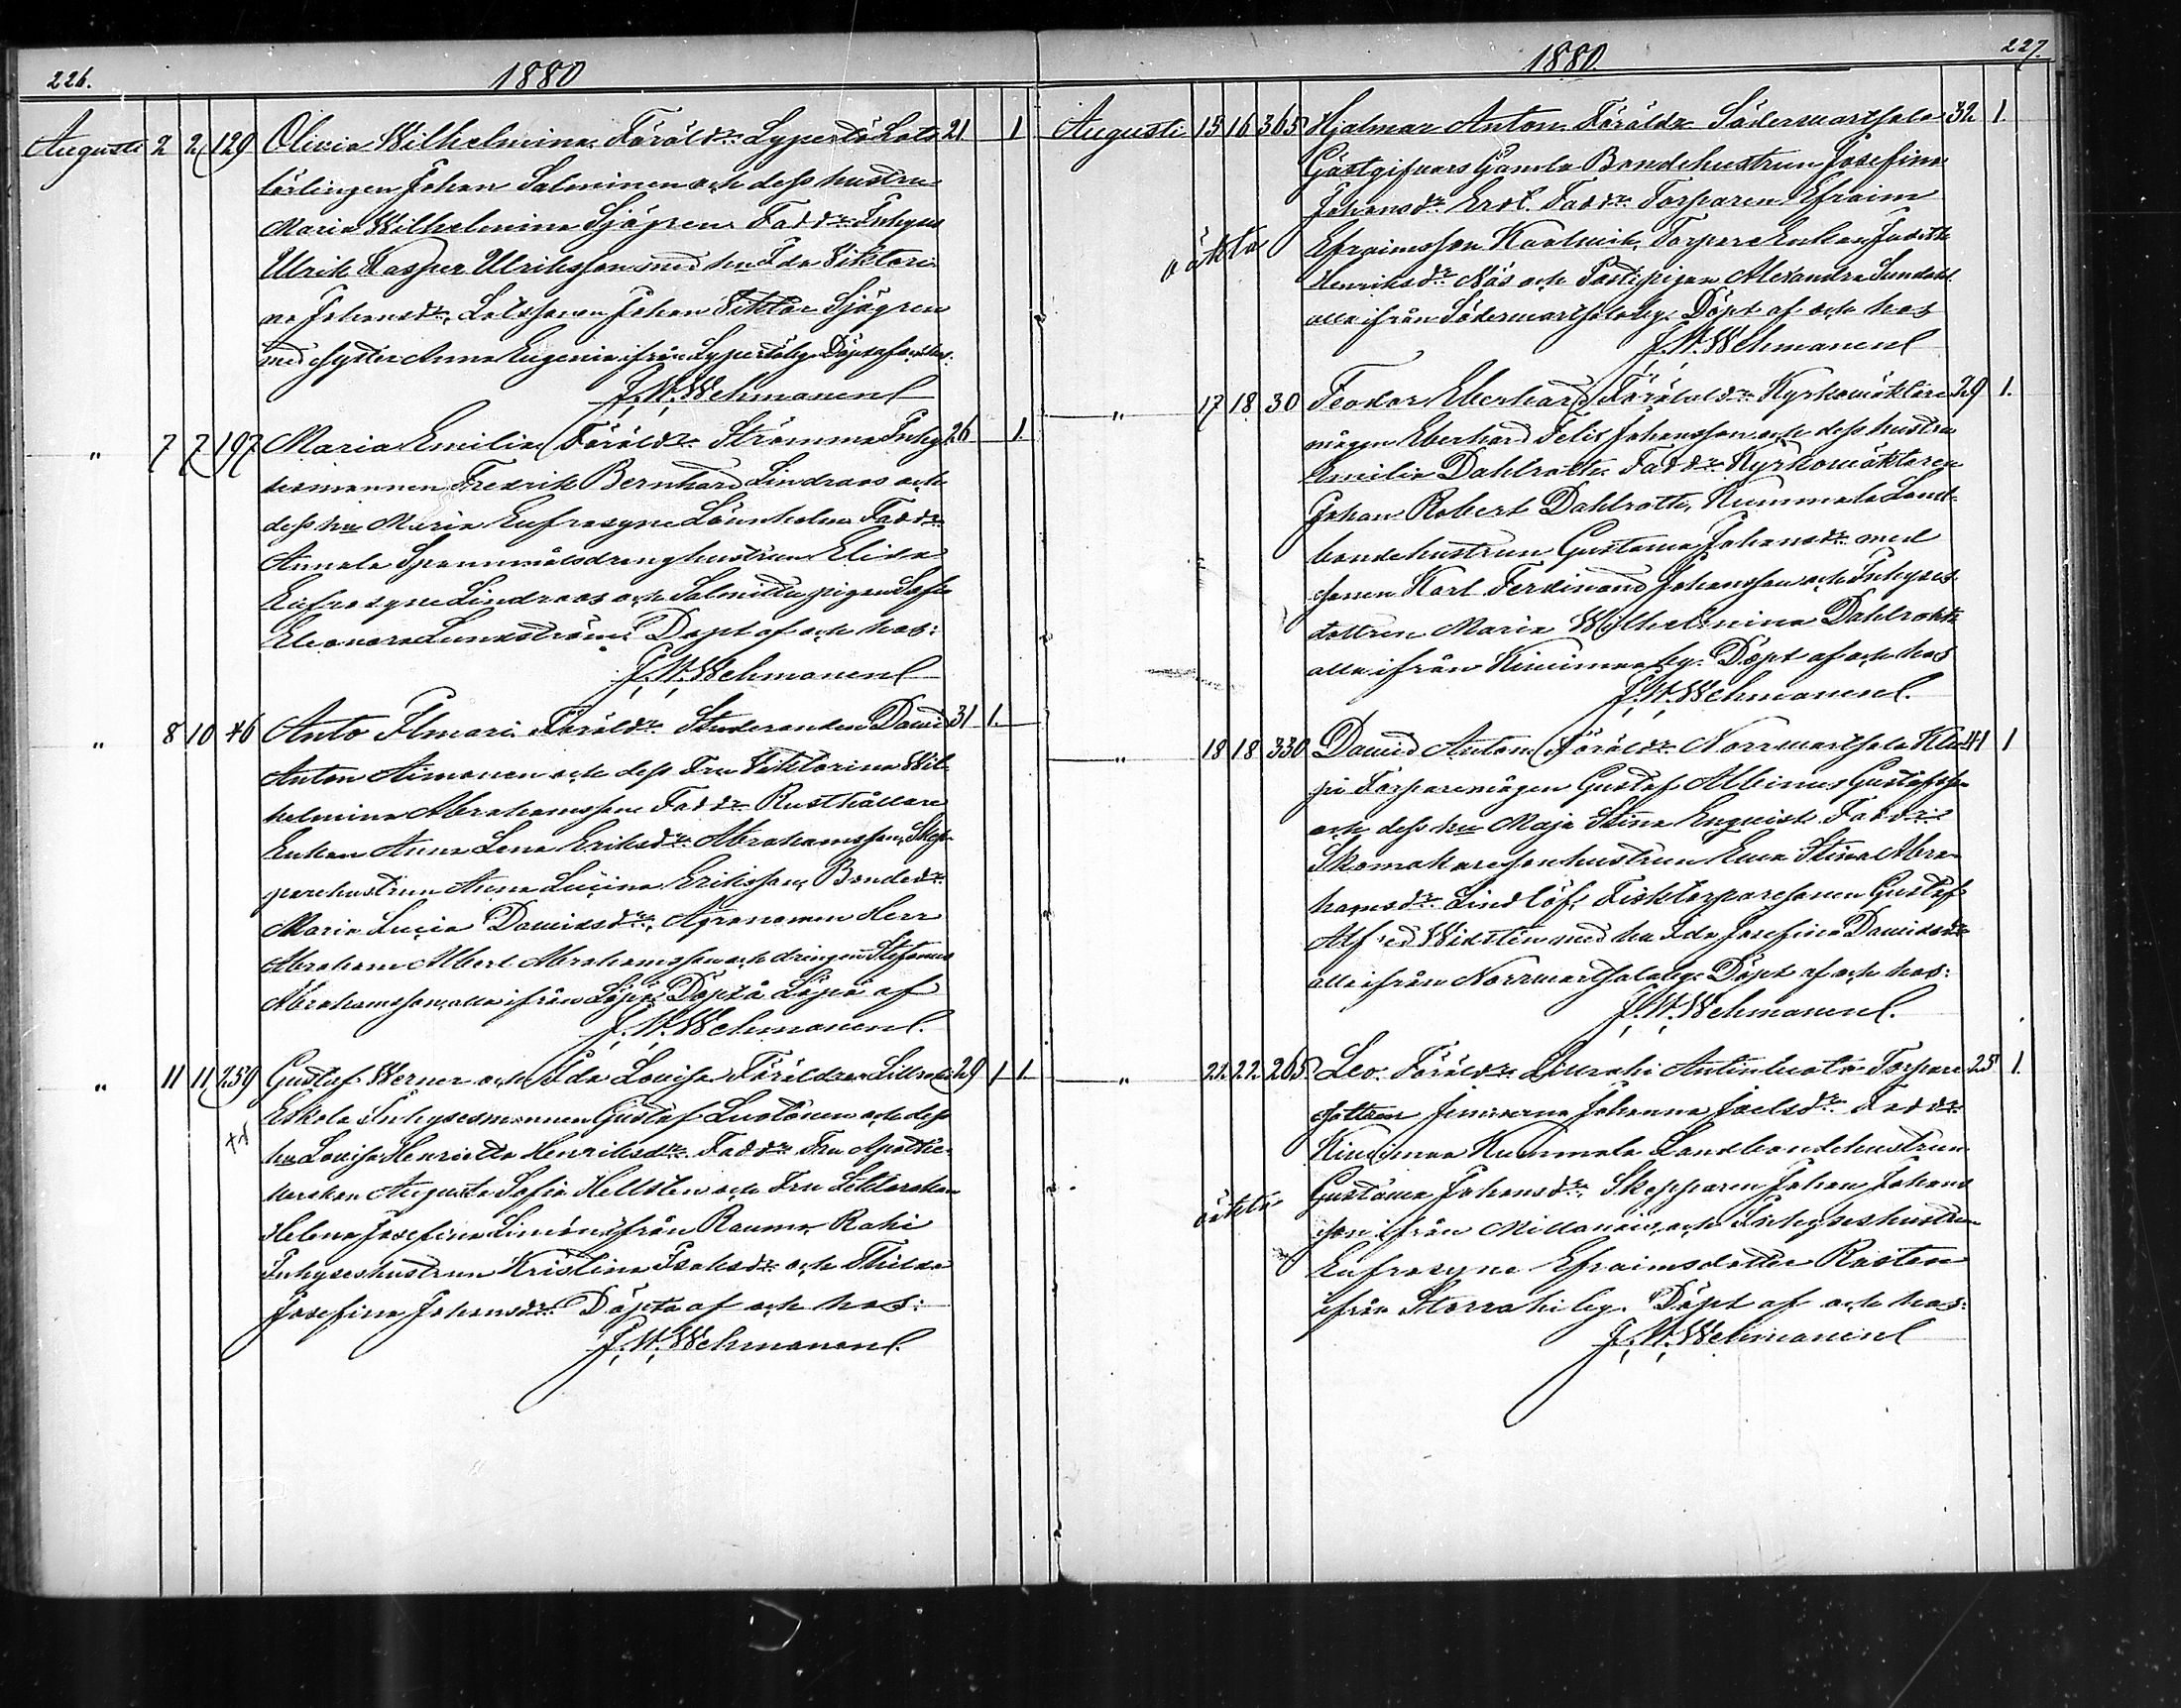 226.
1880
Augusti 2 2 129 Olivia Wilhelmina. Föräldr. Lypertö Lots 21 1
lärlingen Johan Salminen och dess hustru
Maria Wilhelmina Sjögren. Faddr. Inhyses
Ulrik Kasper Ulriksson med hu Ida Viktori-
na Johansdr, Lotssonen Johan Viktor Sjögren
med syster Anna Eugenia ifrån Lypertö by. Döpt af och hos:
J. W. Wehmanen
" 7 7 197 Maria Emilia Föräldr. Strömma Inhy 26 1.
sesmannen Fredrik Bernhard Lindroos och
dess hu Maria Eufrosyne Lönnholm Faddr.
Annala Spannmålsdrenghustrun Elida
Eufrosyne Lindroos och Salmittu pigan Sofia
Eleonora Lundström. Döpt af och hos:
J. W. Wehmanen
" 8 10 46 Anto Ilmari. Föräldr. Studeranden David 31 1.
Anton Aimonen och dess Fru Viktorina Wil-
helmina Abrahamsson Faddr. Rusthållare
Enkan Anna Lena Eriksdr Abrahamsson, Skep-
parehustrun Anna Lucina Eriksson, Bondedr.
Maria Lucia Davidsdr, Agronomen Herr
Abraham Albert Abrahamsson och drengen Stefanus
Abrahamsson, alla ifrån Löpö. Döpt å Löpö af
J. W. Wehmanen.
" 11 11 259 Gustaf Werner och Ida Lovisa Föräldrar Lillrahi 29 1 1.
Eskola Inhysesmannen Gustaf Lustonen och dess
hu Lovisa Henrietta Henriksdr. Faddr. Fru Apothe-
kerskan Augusta Sofia Hellsten och Fru
Helena Josefina Limón ifrån Raumo, Rahi
Inhyseshustrun Kristina Isaksdr och Thilda
Josefina Johansdr. Döpta af och hos:
J. W. Wehmanen.
227.
1880.
Augusti 15 16 365 Hjalmar Anton. Föräldr. Södermarthala 32 1.
Gästgifvars Gamla Bondehustrun Josefina
Johansdr Erol. Faddr. Torparen Efraim
oäkta Efraimsson Karlmik, Torpare Enkan Judith
Henriksdr Näs och Pastipigan Alexandra Sundell
alla ifrån Södermarthala by. Döpt af och hos
J. W. Wehmanen
" 17 18 30 Feodor Eberhard. Föräldr. Kyrkowäktare 29 1.
mågen Eberhard Felix Johansson och dess hustru
Emilia Dahlroth. Faddr. Kyrkowäktaren
Johan Robert Dahlroth, Kummala Land-
bondehustrun Gustava Johansdr med
sonen Karl Ferdinand Johansson och Inhyses
dottren Maria Wilhelmina Dahlroth
alla ifrån Kiuiimaa by. Döpt af och hos
J. W. Wehmanen.
" 18 18 330 David Anton Föräldr. Norrmarthala Klem 41 1
pi Torparemågen Gustaf Albinus Gustafsson
och dess hu Maja Stina Enqvist. Faddr.
Skomakaresonhustrun Eva Stina Abra-
hamsdr Lindlöf, Fisktorparesonen Gustaf
Alfred Widsten med hu Ida Josefina Davidsdr
alla ifrån Norrmarthala by. Döpt af och hos:
J. W. Wehmanen.
" 22 22 265 Leo. Föräldr. Lillrahi Torpare 25 1.
dottren Johanna Joelsdr. Faddr.
Kiuiimaa Kummala Landbondehustrun
oäkta Gustava Johansdr. Skepparen Johan Johans
son ifrån och Inhyseshustrun
Eufrosyne Efraimsdotter Rosten
ifrån Storrahi by. Döpt af och hos:
J. W. Wehmanen